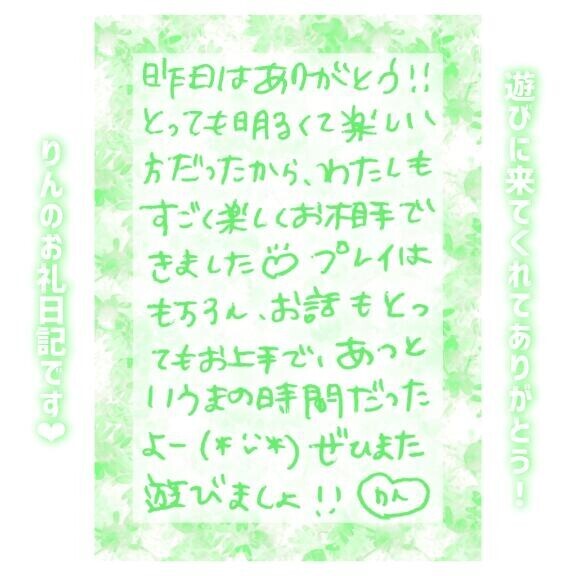 遊びに来てくれてありがとう!
昨日はありがとう!!
とっても明るくて楽しい
方だったから、わたしも
すごく楽しくお相手で
きました♡ プレイは
もちろん、お話もとっ
てもお上手で、あっと
いうまの時間だった
よー(*¨*)ぜひまた
遊びましょ!!
りんのお礼日記です♥